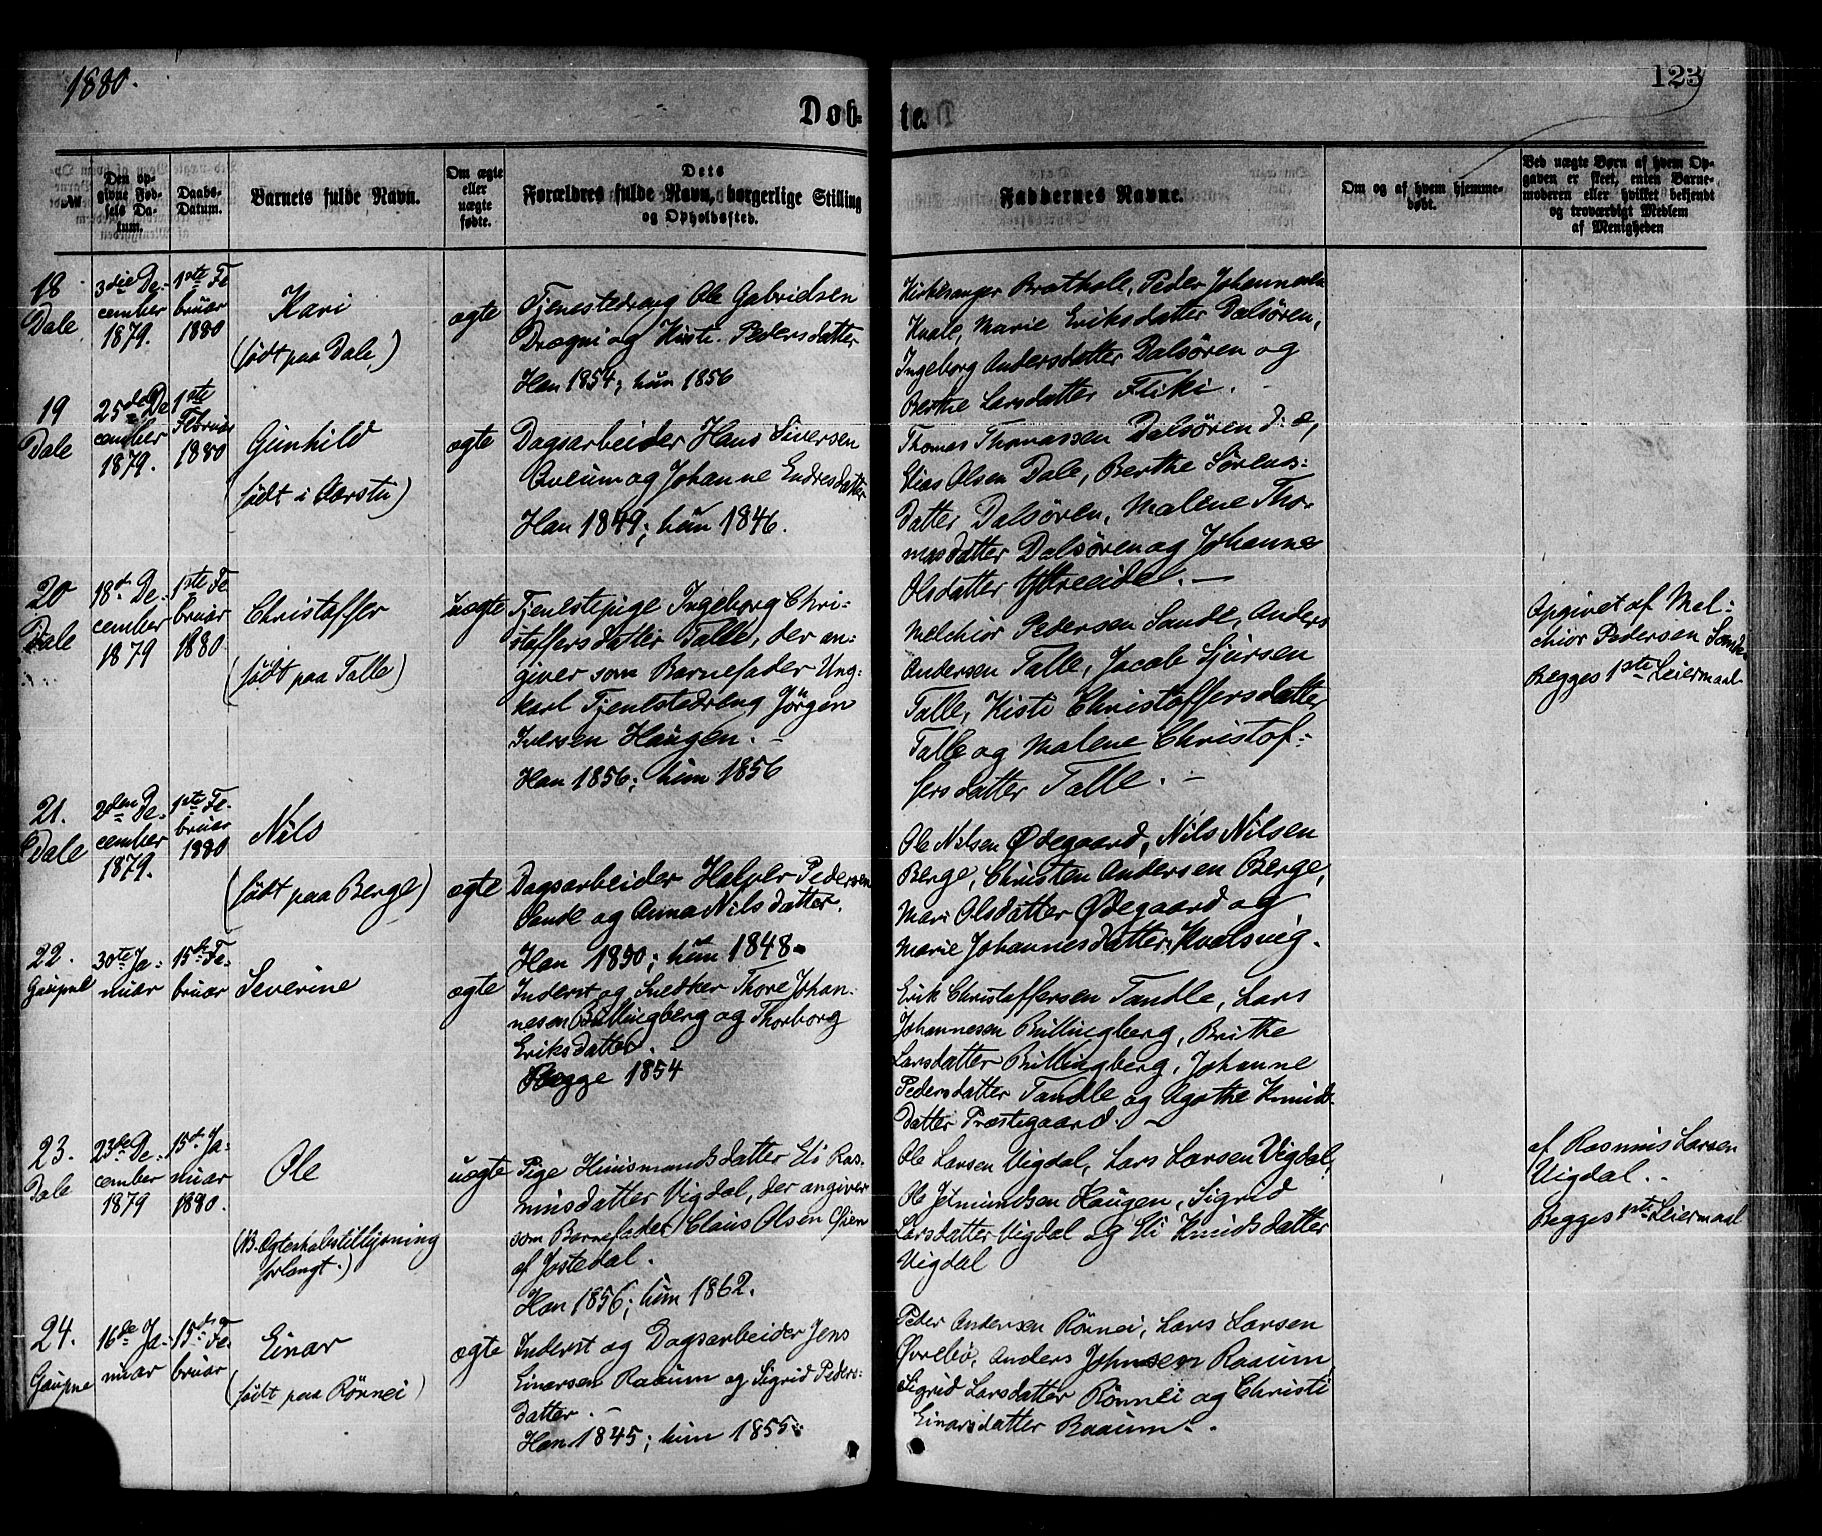 1880.
123
Døb-
te.
Den op-
givne Fød-
sels Da-
tum.
Daabs-
Datum.
Barnets fulde Navn.
Om ægte
eller
uægte
fødte.
Dets
Forældres fulde Navn, borgerlige Stilling
og Opholdssted.
Faddernes Navne.
Om og af hvem hjemme-
døbt.
Ved uægte Børn af hvem Op-
gaven er skeet, enten Barne-
moderen eller hvilket bekjendt
og troværdigt Medlem
af Menigheden
18
Dale
3die De-
cember
1879.
1ste Fe
bruar
1880
Kari
(født paa Dale,)
ægte
Tjenestedreng Ole Gabrielsen
Drægni og Kisti Pedersdatter
Han 1854; hun 1856
Kirkesanger Brathole, Peder Johannesen
Kvale, Marie Eriksdatter Dalsøren,
Ingeborg Andersdatter Dalsøren og
Berthe Larsdatter Fliki.
19
Dale
25de De
cember
1879.
1ste
Februar
1880
Gunhild
(født i Aarstu)
ægte
Dagsarbeider Hans Siversen
Qveum og Johanne Endresdatter
Han 1849; hun 1846.
Thomas Thomassen Dalsøren d: æ,
Elias Olsen Dale, Berthe Sørens:
datter Dalsøren, Malene Tho-
masdatter Dalsøren og Johanne
Olsdatter Ytreeide. —
20
Dale
18d De-
cember
1879
1ste Fe
bruar
1880.
Christoffer
(født paa Talle)
uægte
Tjenestepige Ingeborg Chri-
stoffersdatter Talle, der an-
giver som Barnefader Ung-
karl Tjenestedreng Jørgen
Iversen Haugen. —
Han 1856; hun 1856
Melchior Pedersen Sande, Anders
Andersen Talle, Jacob Sjursen
Talle, Kisti Christoffersdatter
Talle og Malene Christof-
fersdatter Talle. —
Opgivet af Mel-
chior Pedersen Sande.
Begges 1ste Leiermaal
21.
Dale
2den De-
cember
1879.
1ste Fe-
bruar
1880
Nils
(født paa Berge)
ægte
Dagsarbeider Halvor Pedersen
Sande og Anna Nilsdatter.
Han 1850; hun 1848.
Ole Nilsen Ødegaard, Nils Nilsen
Berge, Christen Andersen Berge,
Mari Olsdatter Ødegaard og
Marie Johannesdatter Kvalsvig.
22.
Gaupne
30te Ja-
nuar
15de Fe-
bruar
Severine
ægte
Inderst og Snedker Thore Johan-
nesen Bullingberg og Thorborg
Eriksdatter.
Begge 1854
Erik Christoffersen Tandle, Lars
Johannesen Bullingberg, Brithe
Larsdatter Bullingberg, Johanne
Pedersdatter Tandle og Agathe Knuds-
datter Præstegaard. —
23.
Dale
23de De-
cember
1879
15de Ja-
nuar
1880.
Ole
(NB. Ægteskabstillysning
forlangt.)
uægte
Pige Huusmandsdatter Eli Ras-
musdatter Vigdal, der angiver
som Barnefader Claus Olsen Gjen
af Jostedal.
Han 1856; hun 1862.
Ole Larsen Vigdal, Lars Larsen Vigdal,
Ole Jetmundsen Haugen, Sigrid
Larsdatter Vigdal og Eli Knudsdatter
Vigdal
af Rasmus Larsen
Vigdal. .
Begges 1ste Leiermaal
24.
Gaupne
16de Ja-
nuar
15de Fe-
bruar
Einar
(født paa Rønnei)
ægte
Inderst og Dagsarbeider Jens
Einarsen Raaum og Sigrid Peders-
datter. —
Han 1845; hun 1855.
Peder Andersen Rønnei, Lars Larsen
Øvrebø, Anders Johnsen Raaum,
Sigrid Larsdatter Rønnei og Christi
Einarsdatter Raaum. .